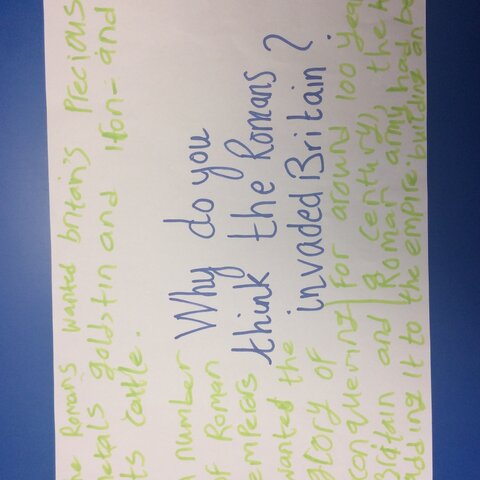 Romans wanted britain's precious
metals gold, tin and iron - and
its cattle.
Why do you
think the Romans
invaded Britain?
number
of Roman
emperors
wanted the
glory of
conquering
Britain and
adding it to the empire
for around 100
a century), the
Roman army had
building